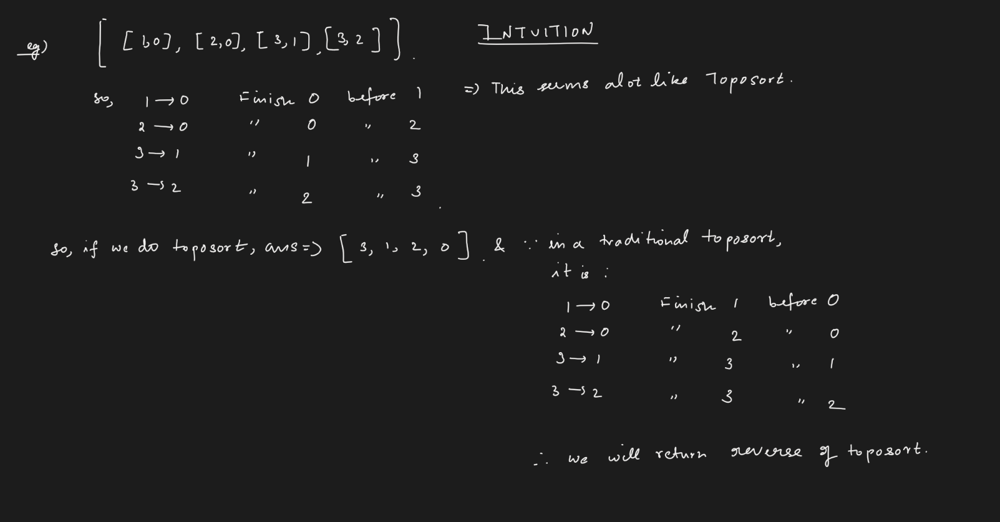 INTUITION
eg) [ [1,0], [2,0], [3,1], [3,2] ].
so, 1 → 0 Finish 0 before 1 => This seems alot like Toposort.
2 → 0 " 0 " 2
3 → 1 " 1 " 3
3 → 2 " 2 " 3.
so, if we do toposort, ans => [3, 1, 2, 0]. & ∵ in a traditional toposort,
it is :
1 → 0 Finish 1 before 0
2 → 0 " 2 " 0
3 → 1 " 3 " 1
3 → 2 " 3 " 2
∴ we will return reverse of toposort.